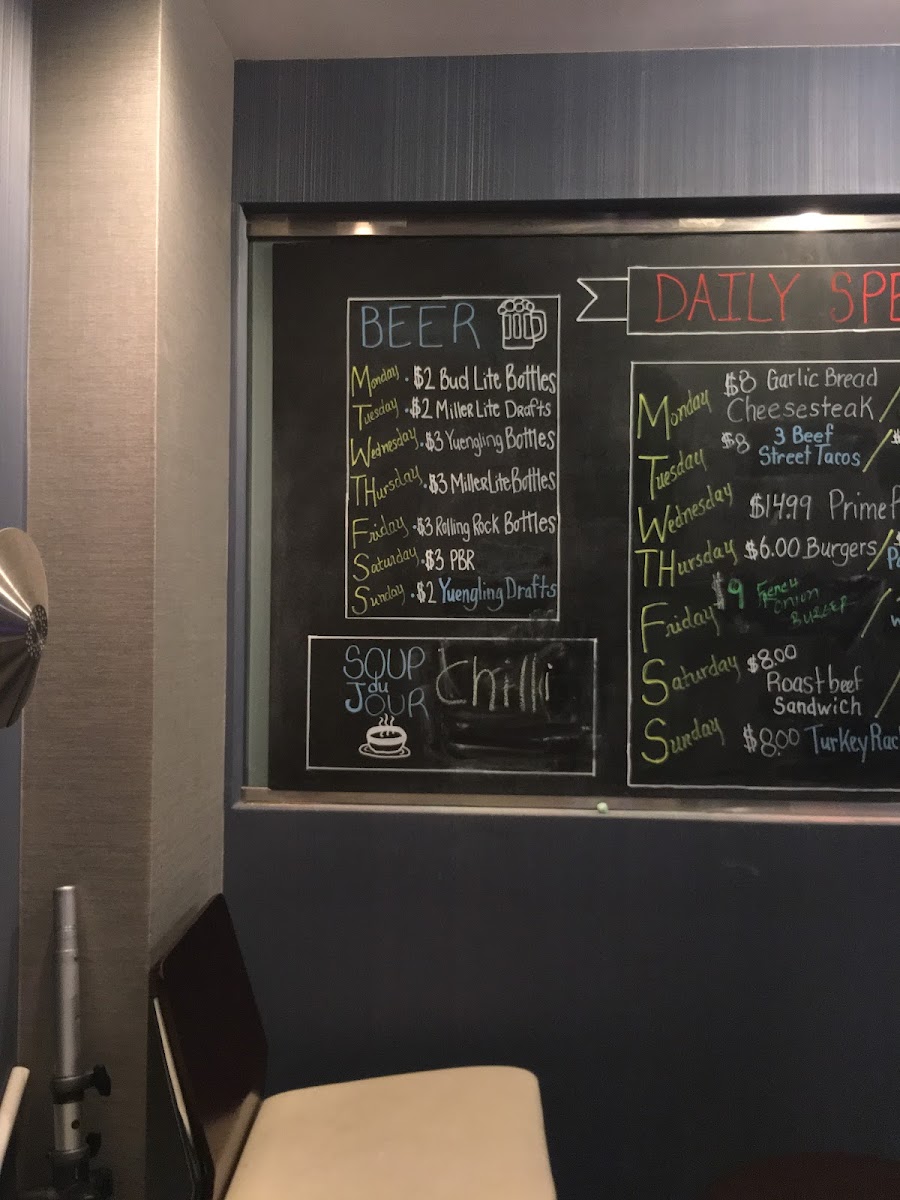 BEER
Monday · $2 Bud Lite Bottles
Tuesday · $2 Miller Lite Drafts
Wednesday · $3 Yuengling Bottles
THursday · $3 Miller Lite Bottles
Friday · $3 Rolling Rock Bottles
Saturday · $3 PBR
Sunday · $2 Yuengling Drafts
SOUP du JOUR
Chilli
DAILY SPE
Monday $8 Garlic Bread
Cheesesteak /
Tuesday $8 3 Beef
Street Tacos /
Wednesday $14.99 Prime
THursday $6.00 Burgers /
Friday $9 French
Onion
BURGER /
Saturday $8.00
Roast beef
Sandwich /
Sunday $8.00 Turkey